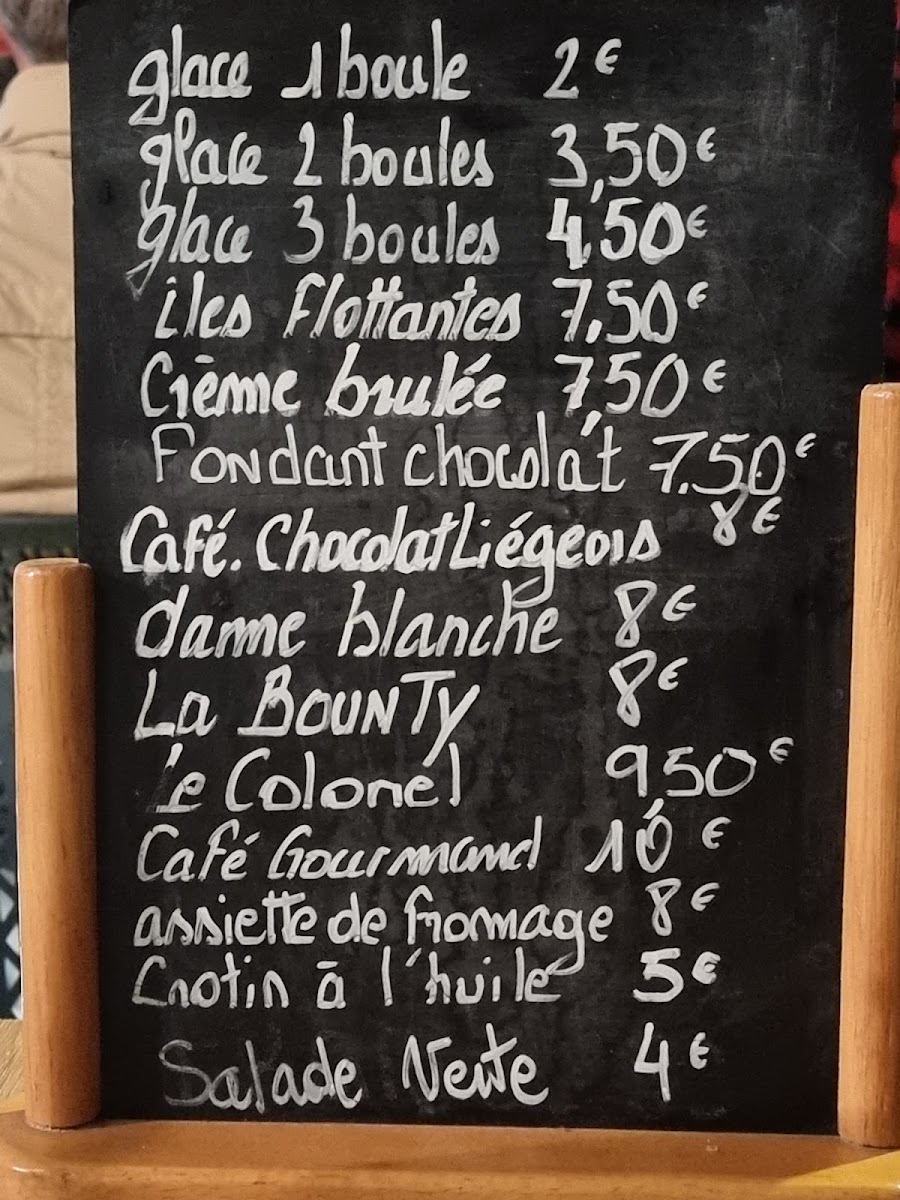 glace 1 boule 2€
glace 2 boules 3,50€
glace 3 boules 4,50€
iles flottantes 7,50€
Crème brulée 7,50€
Fondant chocolat 7.50€
Café. Chocolat Liégeois 8€
dame blanche 8€
La BOUNTY 8€
Le Colonel 9,50€
Café Gourmand 10€
assiette de fromage 8€
Crotin à l'huile 5€
Salade Verte 4€